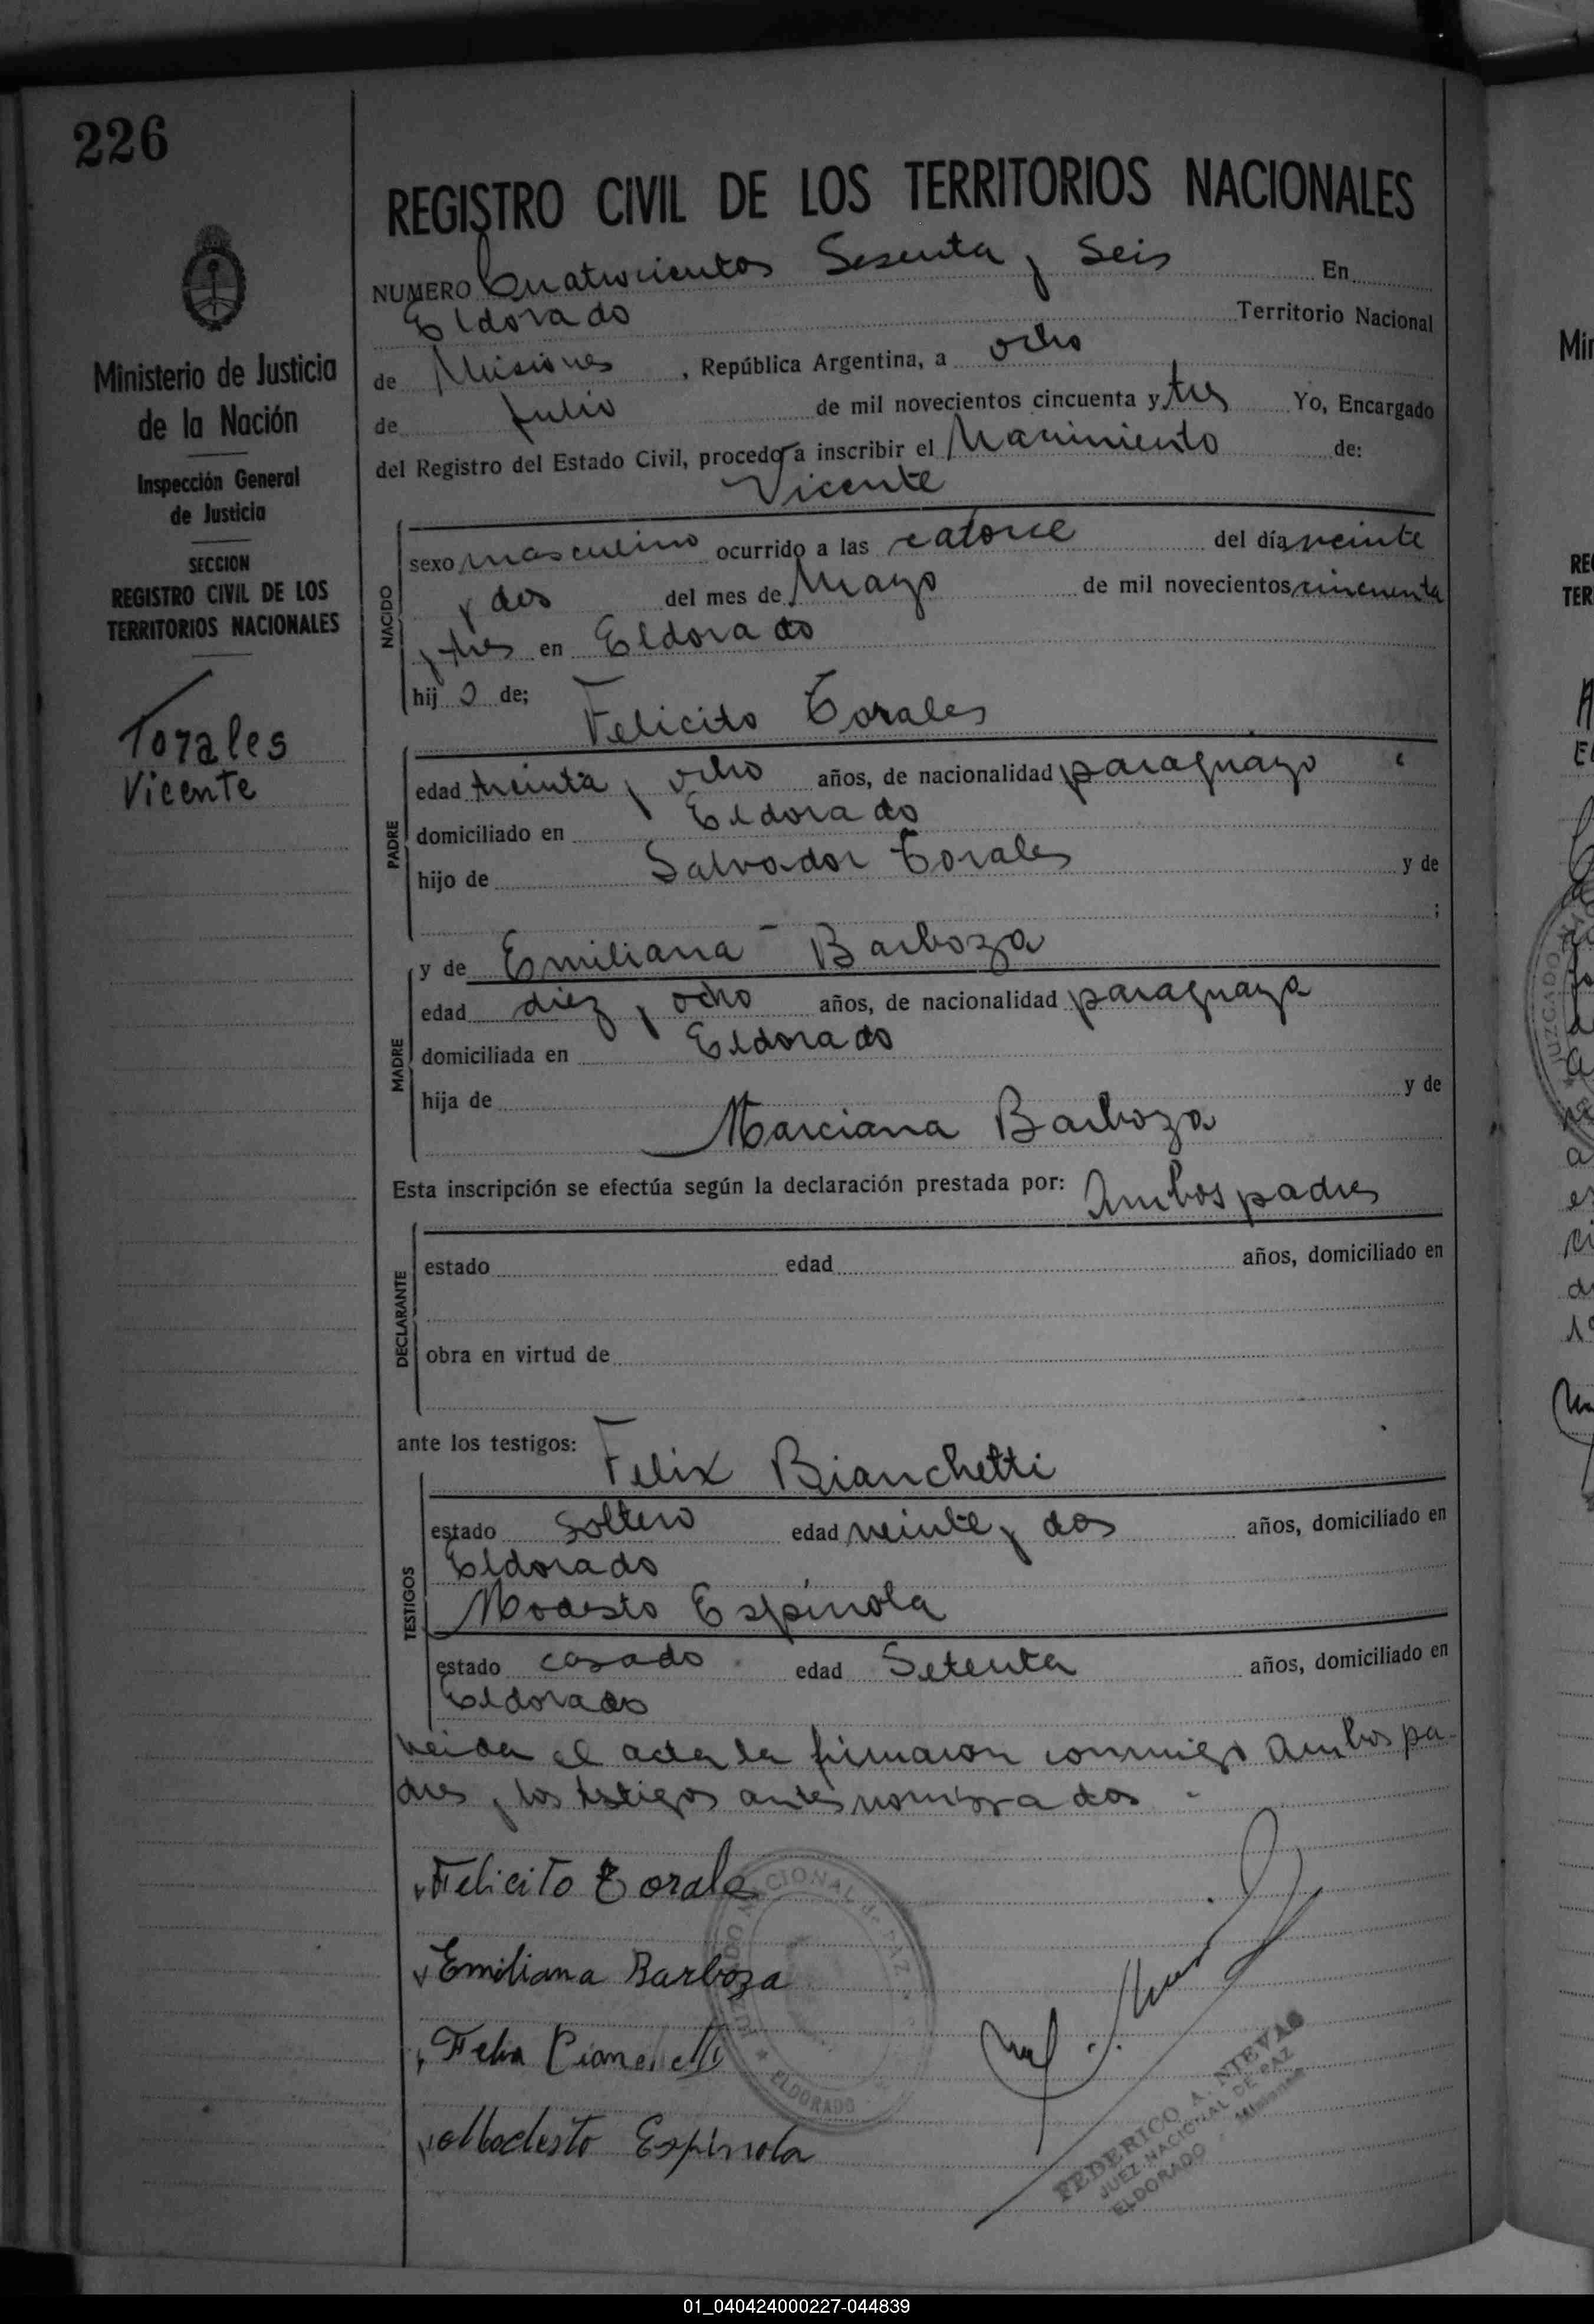 226
REGISTRO CIVIL DE LOS TERRITORIOS NACIONALES
Ministerio de Justicia
de la Nación
Inspección General
de Justicia
SECCION
REGISTRO CIVIL DE LOS
TERRITORIOS NACIONALES
Torales
Vicente
NUMERO Cuatrocientos Sesenta y Seis En
Eldorado Territorio Nacional
de Misiones, República Argentina, a ocho
de Julio de mil novecientos cincuenta y tres Yo, Encargado
del Registro del Estado Civil, procedo a inscribir el Nacimiento de:
Vicente
NACIDO
sexo masculino ocurrido a las catorce del día veinte
y dos del mes de Mayo de mil novecientos cincuenta
y tres en Eldorado
hijo de;
Felicito Torales
PADRE
edad treinta y ocho años, de nacionalidad paraguayo
domiciliado en Eldorado
hijo de Salvador Torales y de
;
y de Emiliana Barboza
MADRE
edad diez y ocho años, de nacionalidad paraguaya
domiciliada en Eldorado
hija de y de
Marciana Barboza
Esta inscripción se efectúa según la declaración prestada por: Ambos padres
DECLARANTE
estado edad años, domiciliado en
obra en virtud de
ante los testigos:
Felix Bianchetti
TESTIGOS
estado soltero edad veinte y dos años, domiciliado en
Eldorado
Modesto Espínola
estado casado edad Setenta años, domiciliado en
Eldorado
Leida el acta la firmaron conmigo ambos pa-
dres y los testigos antes nombrados
Felicito Torales
Emiliana Barboza
Felix Bianchetti
Modesto Espinola
JUZGADO NACIONAL de PAZ
ELDORADO
FEDERICO A. NIEVAS
JUEZ NACIONAL DE PAZ
ELDORADO - Misiones
01_040424000227-044839